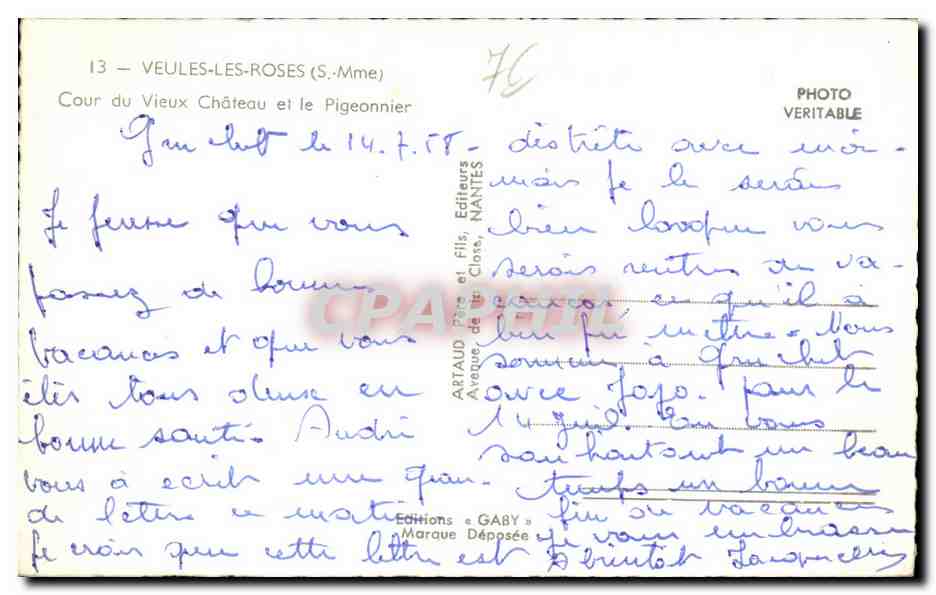 13 — VEULES-LES-ROSES (S.-Mme)
Cour du Vieux Château et le Pigeonnier
76
PHOTO
VERITABLE
le 14.7.58 -
Je pense que vous
passez de bonnes
vacances et que vous
êtes tous deux en
bonne santé. André
vous à écrit une gran-
de lettre ce matin
je crois que cette lettre est
ARTAUD Père et Fils, Editeurs
Avenue de la Close, NANTES
Editions « GABY »
Marque Déposée
CPAPHIL
avec moi -
mais je le serais
bien lorsque vous
serois rentrés de va-
cances ce qu'il à
bien pu mettre. Nous
sommes à Gruchet
avec Jojo. pour le
14 juil. En vous
souhaitant un beau
temps un bonne
fin de vacances
je vous embrasse
à bientôt